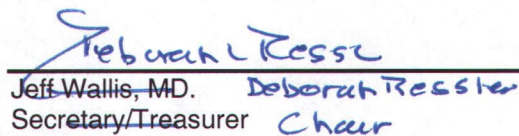 Deborah L Ressl
Jeff Wallis, MD. Deborah Ressler
Secretary/Treasurer Chair